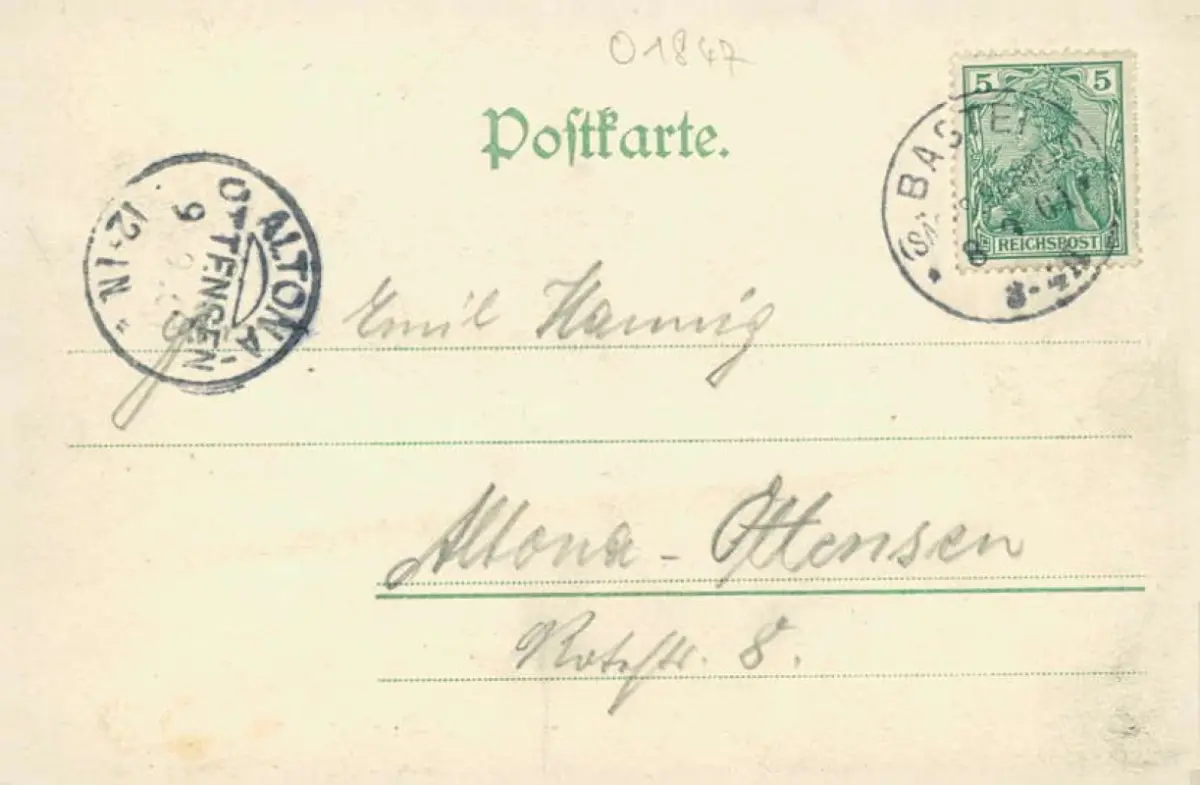 01847
Postkarte.
5 5
REICHSPOST
BASTEI
8 04
ALTONA-
OTTENSEN
9 9
12-1N
Emil Hannig
Altona - Ottensen
8.